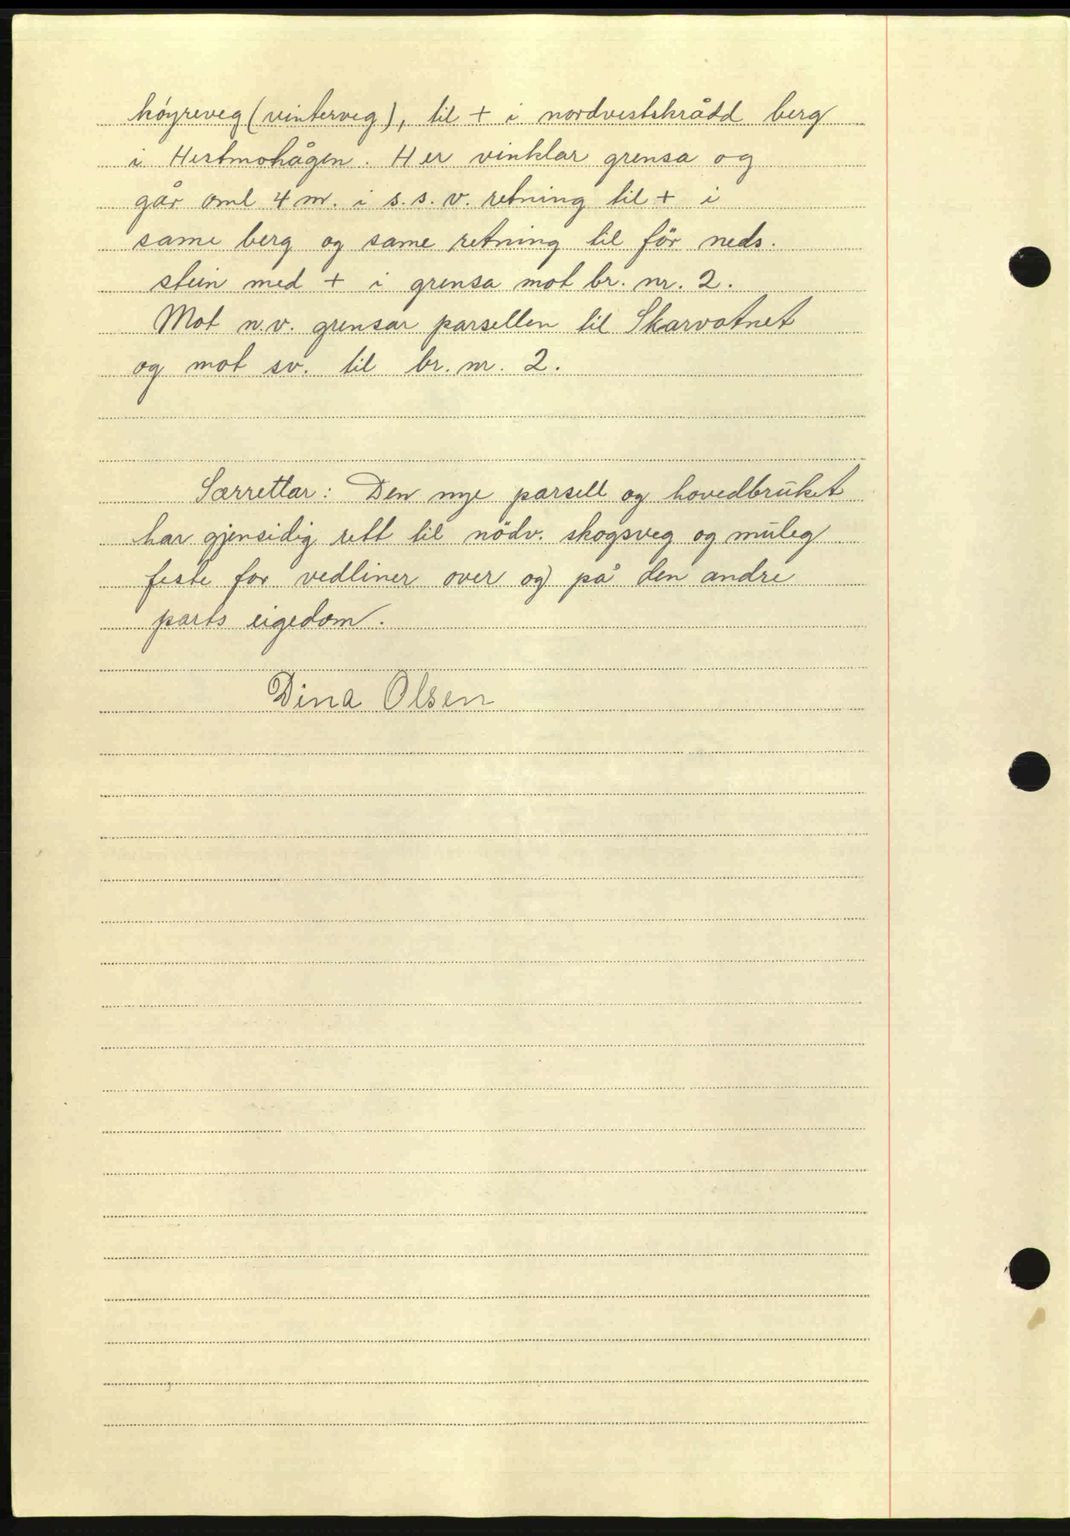 høyreveg (vinterveg), til + i nordvestskrådd berg
i Hestmohågen. Her vinklar grensa og
går oml 4 m. i s.s.v. retning til + i
same berg og same retning til för neds.
stein med + i grensa mot br. nr. 2.
Mot n.v. grensar parsellen til Skarvatnet
og mot sv. til br. nr. 2.
Særrettar: Den nye parsell og hovedbruket
har gjensidig rett til nödv. skogsveg og muleg
feste for vedliner over og på den andre
parts eigedom.
Dina Olsen